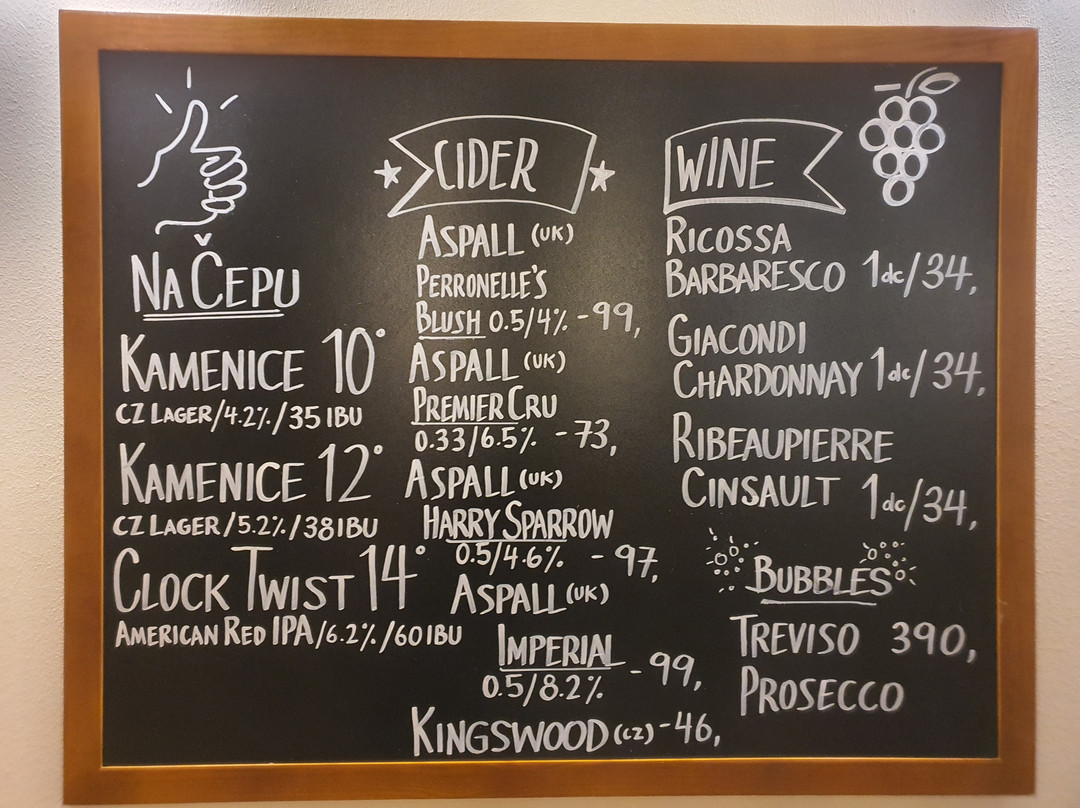 NA ČEPU
KAMENICE 10°
CZ LAGER/4.2%/35 IBU
KAMENICE 12°
CZ LAGER/5.2%/38 IBU
CLOCK TWIST 14°
AMERICAN RED IPA/6.2%/60 IBU
CIDER
ASPALL (UK)
PERRONELLE'S
BLUSH 0.5/4% -99,
ASPALL (UK)
PREMIER CRU
0.33/6.5% -73,
ASPALL (UK)
HARRY SPARROW
0.5/4.6% -97,
ASPALL (UK)
IMPERIAL
0.5/8.2% -99,
KINGSWOOD (CZ) -46,
WINE
RICOSSA
BARBARESCO 1dc/34,
GIACONDI
CHARDONNAY 1dc/34,
RIBEAUPIERRE
CINSAULT 1dc/34,
BUBBLES
TREVISO 390,
PROSECCO